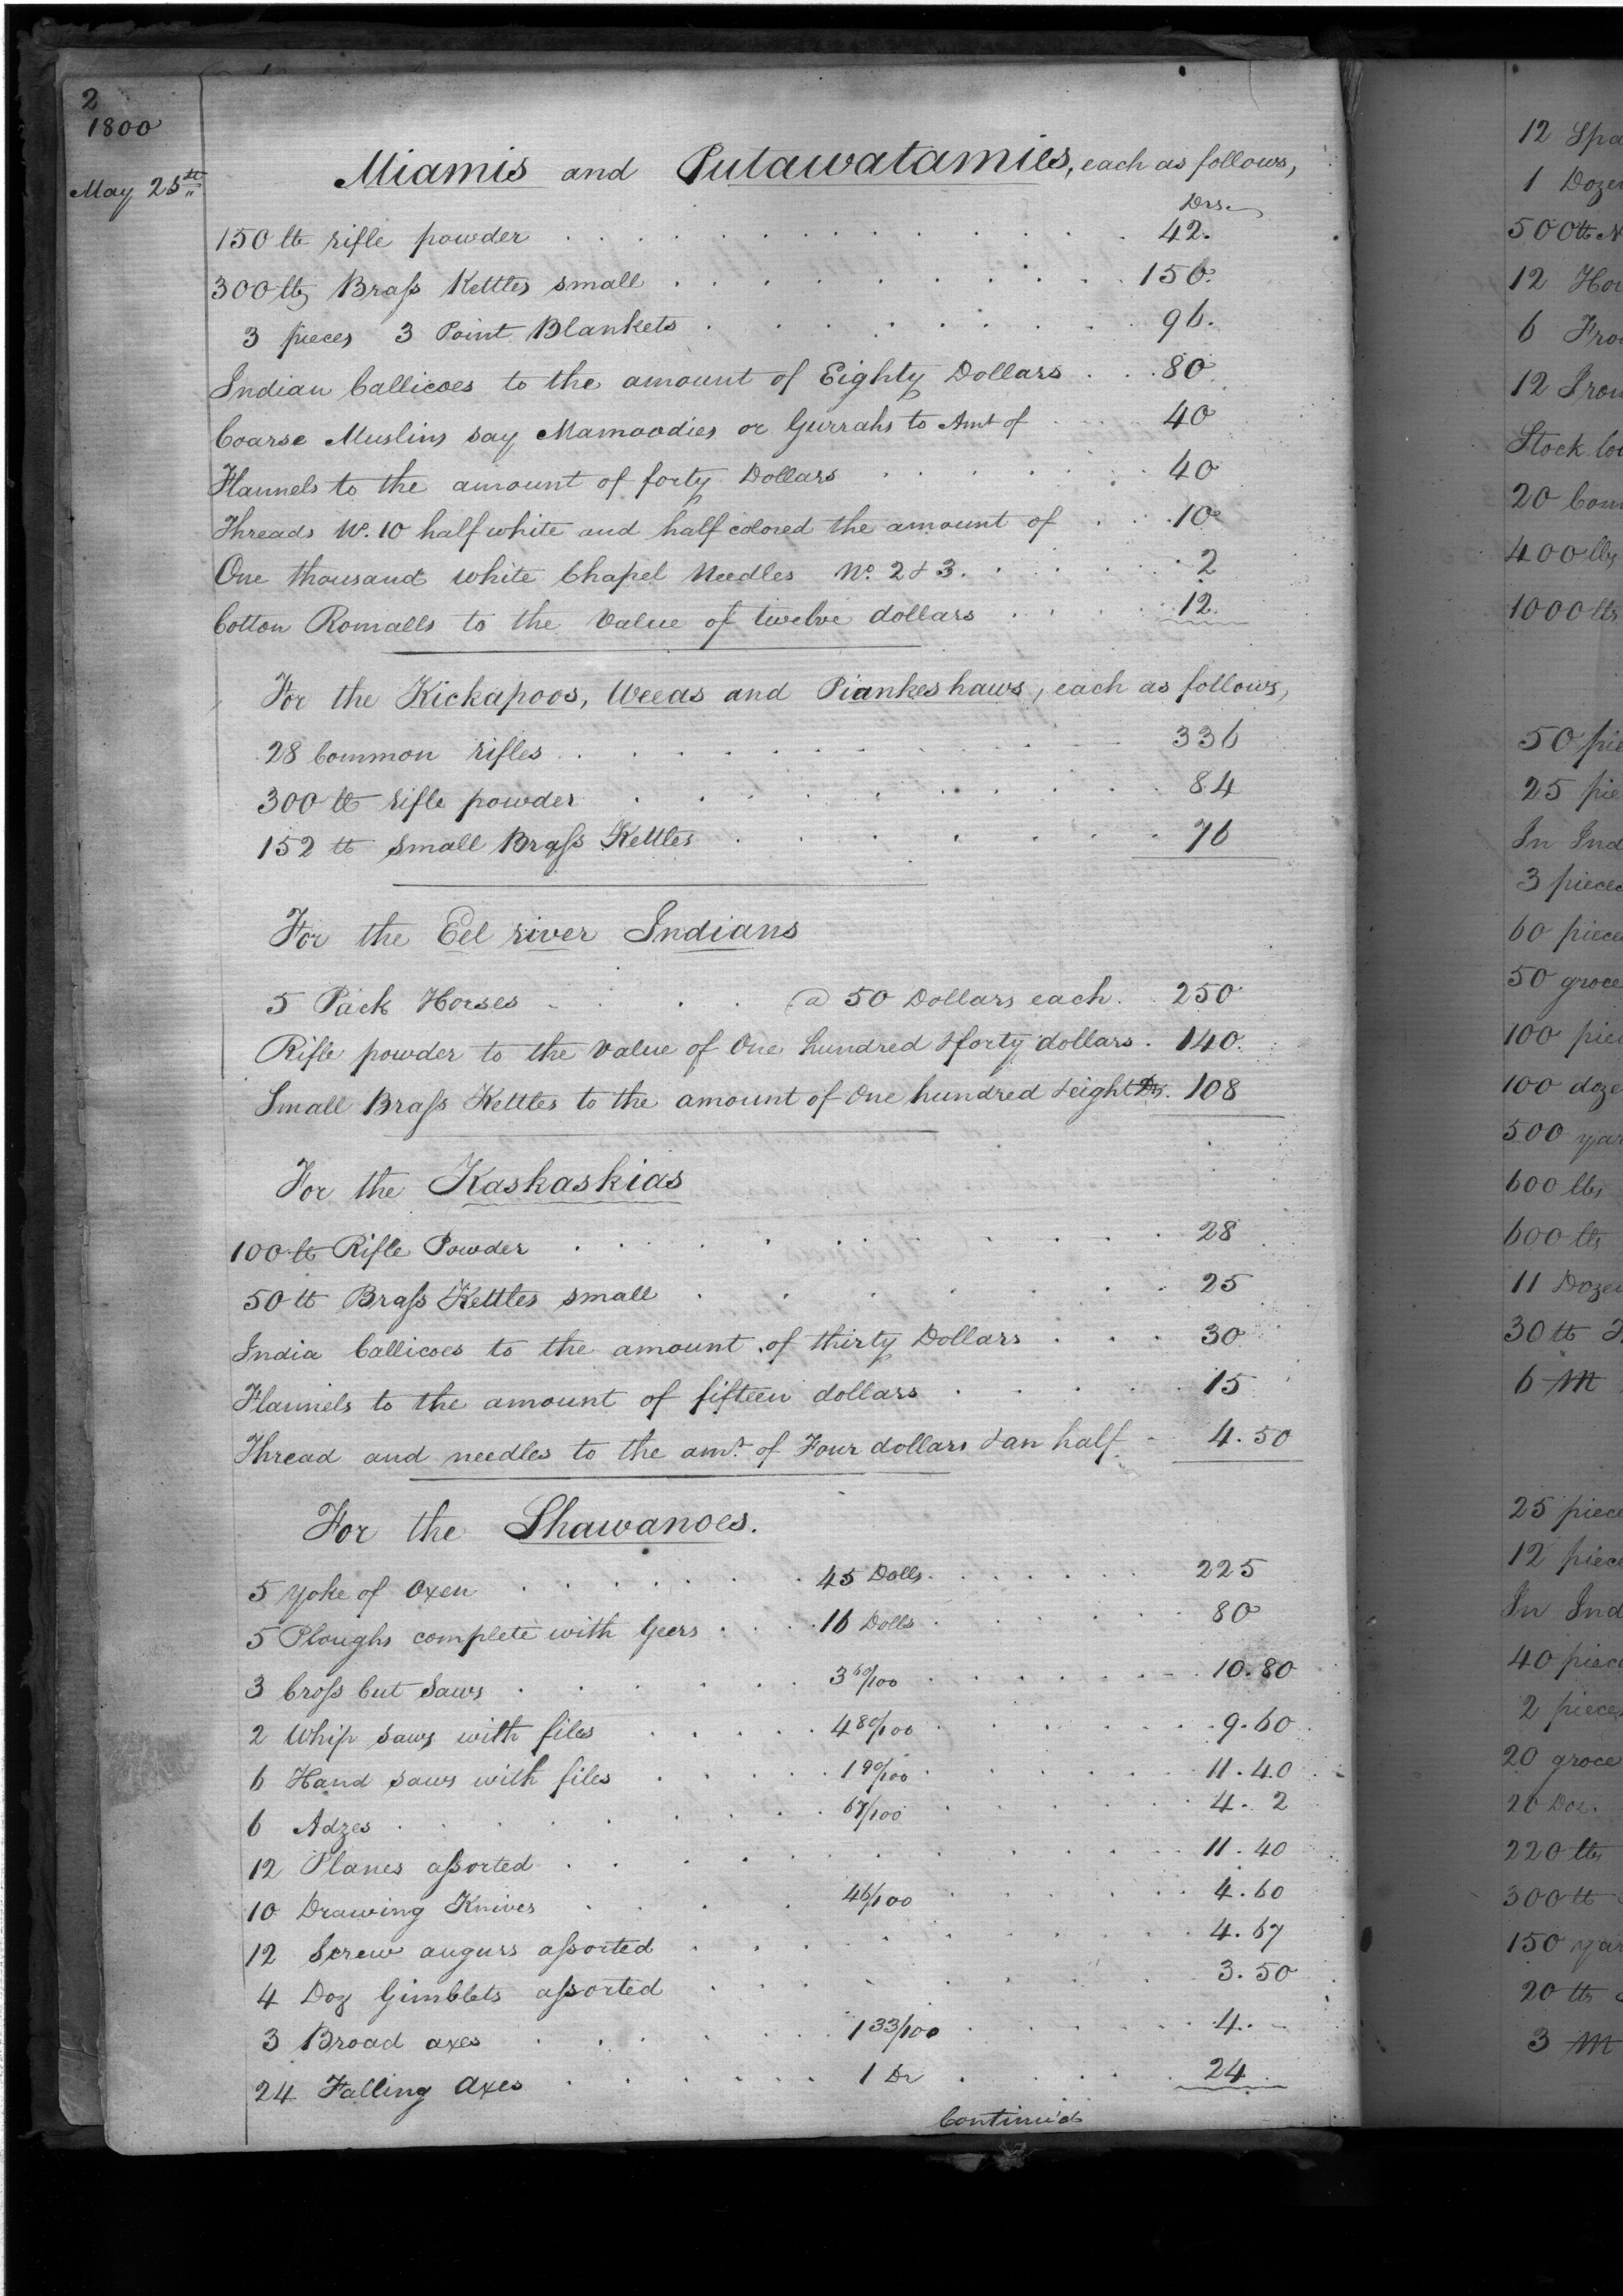 2
1800
May 25th
Miamis and Putawatamies, each as follows,
Drs.
150 lb rifle powder 42.
300 lbs Brass Kettles small 150.
3 pieces 3 Point Blankets 96.
Indian Callicoes to the amount of Eighty Dollars 80
Coarse Muslins say Mamoodies or Gurrahs to Amt of 40
Flannels to the amount of forty Dollars 40
Threads No. 10 half white and half colored the amount of 10
One thousand white Chapel Needles No. 2 & 3. 2
Cotton Romalls to the Value of twelve dollars 12.
For the Kickapoos, Weeas and Piankeshaws, each as follows,
28 Common rifles 336
300 lb rifle powder 84
152 lb small Brass Kettles 76
For the Eel river Indians
5 Pack Horses @ 50 Dollars each. 250
Rifle powder to the value of One hundred & forty dollars. 140.
Small Brass Kettles to the amount of One hundred & eight Drs. 108
For the Kaskaskias
100 lb Rifle Powder 28
50 lb Brass Kettles small 25
India Callicoes to the amount of thirty Dollars 30
Flannels to the amount of fifteen dollars 15
Thread and needles to the amt. of Four dollars & an half 4.50
For the Shawanoes.
5 yoke of Oxen 45 Dolls. 225
5 Ploughs complete with Geers 16 Dolls. 80
3 Cross Cut Saws 3 60/100 10.80
2 Whip Saws with files 4 80/100 9.60
6 Hand saws with files 1 90/100 11.40
6 Adzes 67/100 4. 2
12 Planes assorted 11.40
10 Drawing Knives 46/100 4.60
12 Screw augurs assorted 4.67
4 Doz Gimblets assorted 3.50
3 Broad axes 1 33/100 4. -
24 Falling Axes 1 Dr 24
Continued
12
1 Dozen
500 lb
12
6
12 Iron
Stock
20
400 lbs
1000 lbs
50
25
In
3 pieces
60 pieces
50 groce
100
100
500
600 lbs
600 lbs
11 Dozen
30 lb
6 M
25 piece
12 piece
In
40
2 pieces
20 groce
20 Doz.
220 lbs
300 lb
150
20 lbs
3 M